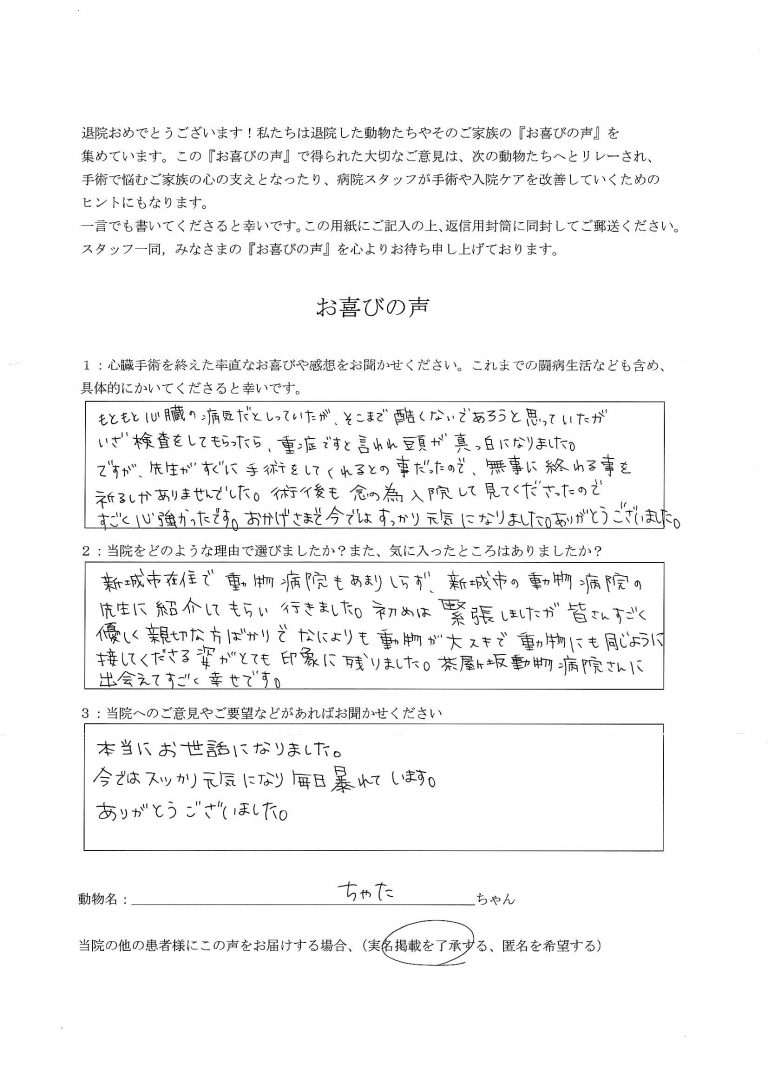 退院おめでとうございます！私たちは退院した動物たちやそのご家族の『お喜びの声』を
集めています。この『お喜びの声』で得られた大切なご意見は、次の動物たちへとリレーされ、
手術で悩むご家族の心の支えとなったり、病院スタッフが手術や入院ケアを改善していくための
ヒントにもなります。
一言でも書いてくださると幸いです。この用紙にご記入の上、返信用封筒に同封してご郵送ください。
スタッフ一同，みなさまの『お喜びの声』を心よりお待ち申し上げております。
お喜びの声
１：心臓手術を終えた率直なお喜びや感想をお聞かせください。これまでの闘病生活なども含め、
具体的にかいてくださると幸いです。
もともと心臓の病気だとしっていたが、そこまで酷くないであろうと思っていたが
いざ検査をしてもらったら、重症ですと言われ頭が真っ白になりました。
ですが、先生がすぐに手術をしてくれるとの事だったので、無事に終わる事を
祈るしかありませんでした。術後も念の為入院して見てくださったので
すごく心強かったです。おかげさまで今ではすっかり元気になりました。ありがとうございました。
２：当院をどのような理由で選びましたか？また、気に入ったところはありましたか？
新城市在住で動物病院もあまりしらず、新城市の動物病院の
先生に紹介してもらい行きました。初めは緊張しましたが皆さんすごく
優しく親切な方ばかりでなによりも動物が大スキで動物にも同じように
接してくださる姿がとても印象に残りました。茶屋ヶ坂動物病院さんに
出会えてすごく幸せです。
３：当院へのご意見やご要望などがあればお聞かせください
本当にお世話になりました。
今ではスッカリ元気になり毎日暴れています。
ありがとうございました。
動物名：ちゃたちゃん
当院の他の患者様にこの声をお届けする場合、（実名掲載を了承する、匿名を希望する）